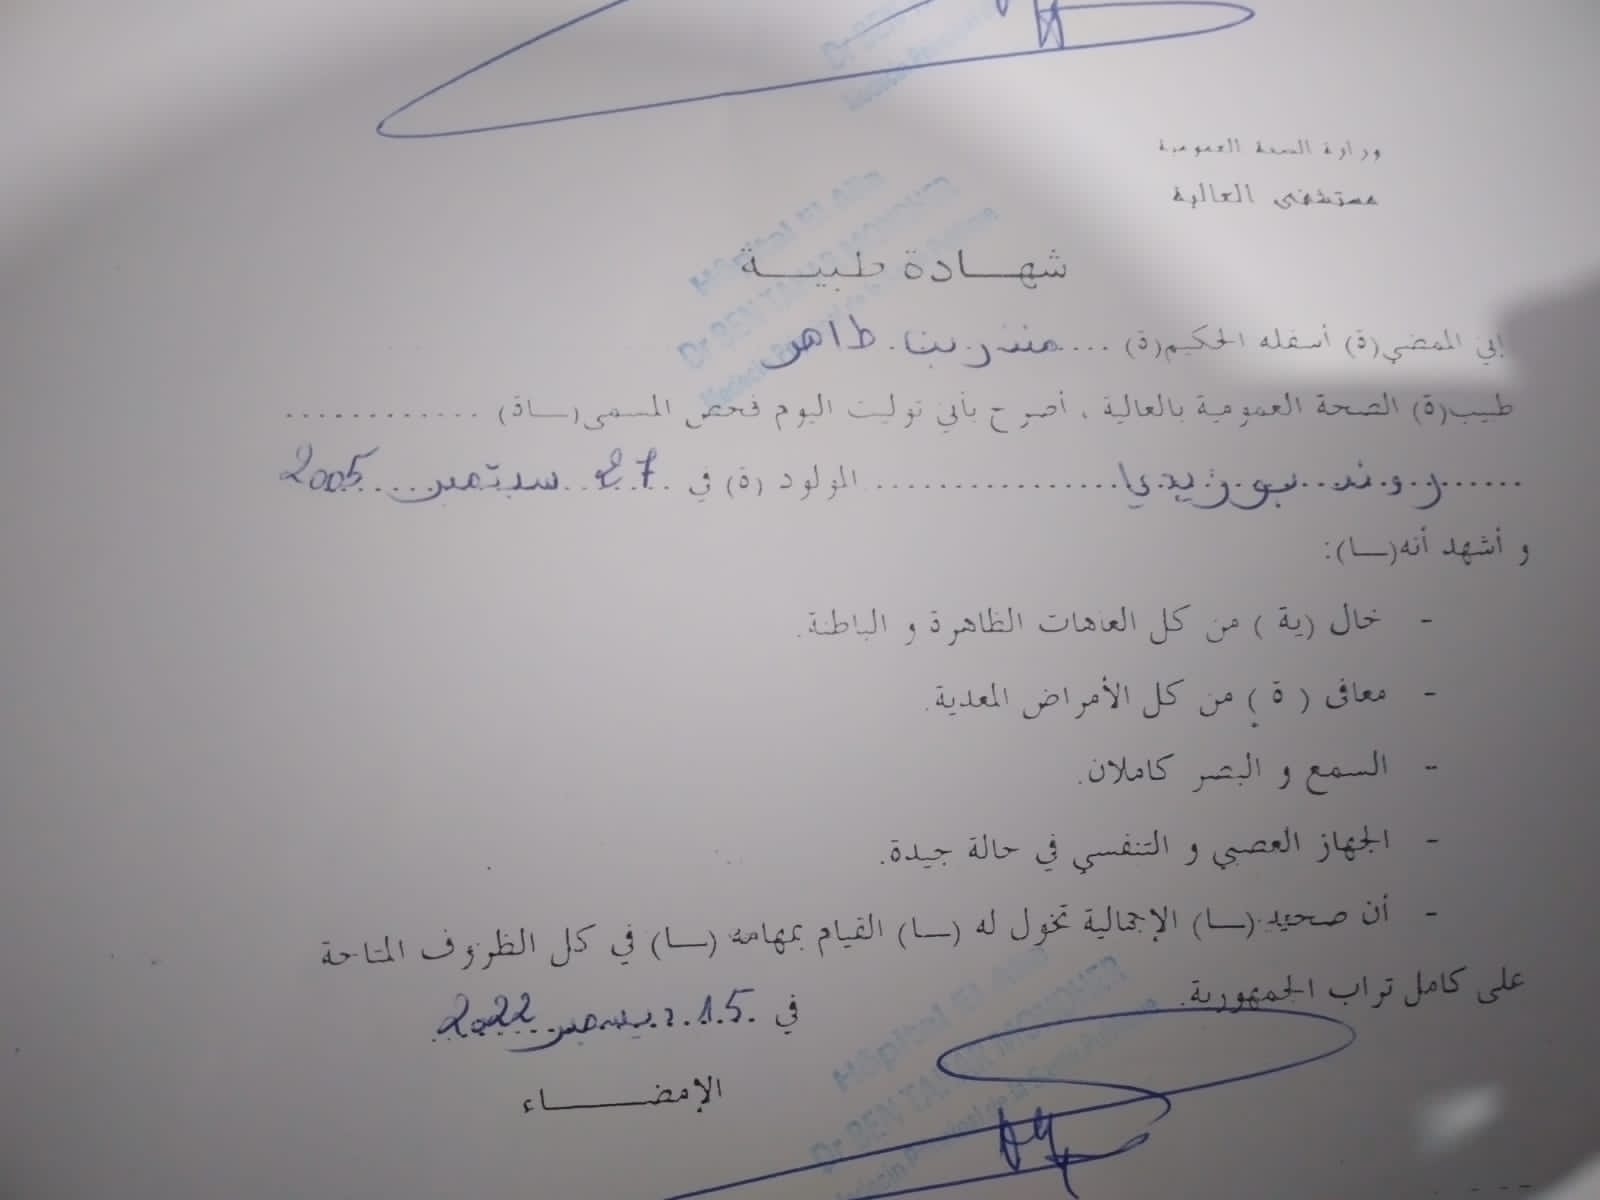 Dr BEN
وزارة الصحة العمومية
مستشفى العالية
Hôpital El Alia
Dr BEN TAHAR MONDHER
شهــــادة طـبيـــــة
إني الممضي(ة) أسفله الحكيم(ة) .... منذر بن طاهر
طبيب(ة) الصحة العمومية بالعالية ، أصرح بأني توليت اليوم فحص المسمى(ـــاة) .............
...... روند بوزيدي ................ المولود (ة) في .. 27 سبتمبر 2005
و أشهد أنه(ـــا):
- خال (ية ) من كل العاهات الظاهرة و الباطنة.
- معافى ( ة ) من كل الأمراض المعدية.
- السمع و البصر كاملان.
- الجهاز العصبي و التنفسي في حالة جيدة.
- أن صحته(ـــا) الإجمالية تخول له (ـــا) القيام بمهامه (ـــا) في كل الظروف المتاحة
على كامل تراب الجمهورية.
في 15 ديسمبر 2022
Hôpital El Alia
Dr BEN TAHAR MONDHER
الإمضــــــــاء